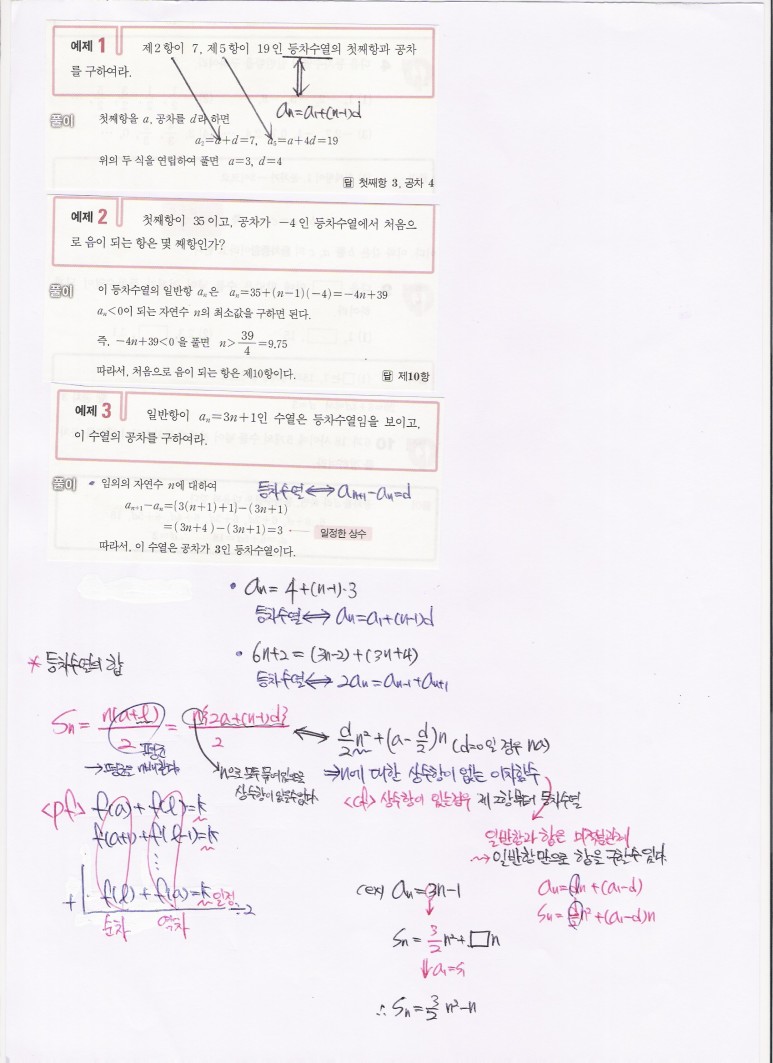 예제 1 제2항이 7, 제5항이 19인 등차수열의 첫째항과 공차
를 구하여라.
aₙ=a₁+(n-1)d
풀이 첫째항을 a, 공차를 d라 하면
a₂=a+d=7, a₅=a+4d=19
위의 두 식을 연립하여 풀면 a=3, d=4
답 첫째항 3, 공차 4
예제 2 첫째항이 35이고, 공차가 -4인 등차수열에서 처음으
로 음이 되는 항은 몇 째항인가?
풀이 이 등차수열의 일반항 aₙ은 aₙ=35+(n-1)(-4)=-4n+39
aₙ<0이 되는 자연수 n의 최소값을 구하면 된다.
즉, -4n+39<0을 풀면 n>39/4=9.75
따라서, 처음으로 음이 되는 항은 제10항이다. 답 제10항
예제 3 일반항이 aₙ=3n+1인 수열은 등차수열임을 보이고,
이 수열의 공차를 구하여라.
풀이 • 임의의 자연수 n에 대하여
등차수열⟺aₙ₊₁-aₙ=d
aₙ₊₁-aₙ={3(n+1)+1}-(3n+1)
=(3n+4)-(3n+1)=3 ← 일정한 상수
따라서, 이 수열은 공차가 3인 등차수열이다.
• aₙ=4+(n-1)·3
등차수열⟺aₙ=a₁+(n-1)d
• 6n+2=(3n-2)+(3n+4)
등차수열⟺2aₙ=aₙ₋₁+aₙ₊₁
* 등차수열의 합
Sₙ=n(a+l)/2=n{2a+(n-1)d}/2 ⟷ d/2n²+(a-d/2)n (d=0일 경우 na)
평균
→평균을 n배한다
n으로 모두 묶여있으므로
상수항이 있을수없다
⇒n에 대한 상수항이 없는 이차함수
<cf> 상수항이 있는경우 제2항부터 등차수열
<pf> f(a)+f(l)=k
f(a+1)+f(l-1)=k
⋮
+ f(l)+f(a)=k 일정
÷2
순차 역차
일반항과 합은 미적분관계
⇝일반항만으로 합을 구할수있다.
(ex) aₙ=3n-1
Sₙ=3/2n²+□n
⇓a₁=S₁
∴Sₙ=3/2n²-n
aₙ=dn+(a₁-d)
Sₙ=d/2n²+(a₁-d)n